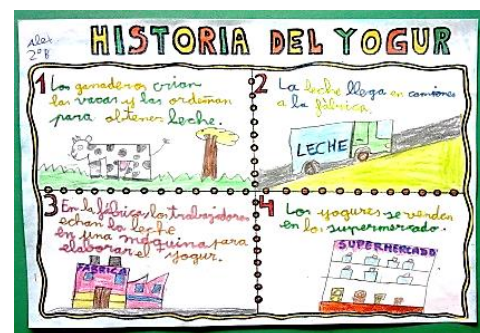 Alex
2º B
HISTORIA DEL YOGUR
1 Los ganaderos crian
las vacas y las ordeñan
para obtener leche.
2 La leche llega en camiones
a la fábrica.
LECHE
3 En la fábrica, los trabajadores
echan la leche
en una máquina para
elaborar el yogur.
FABRICA
4 Los yogures se venden
en los supermercado.
SUPERMERCADO